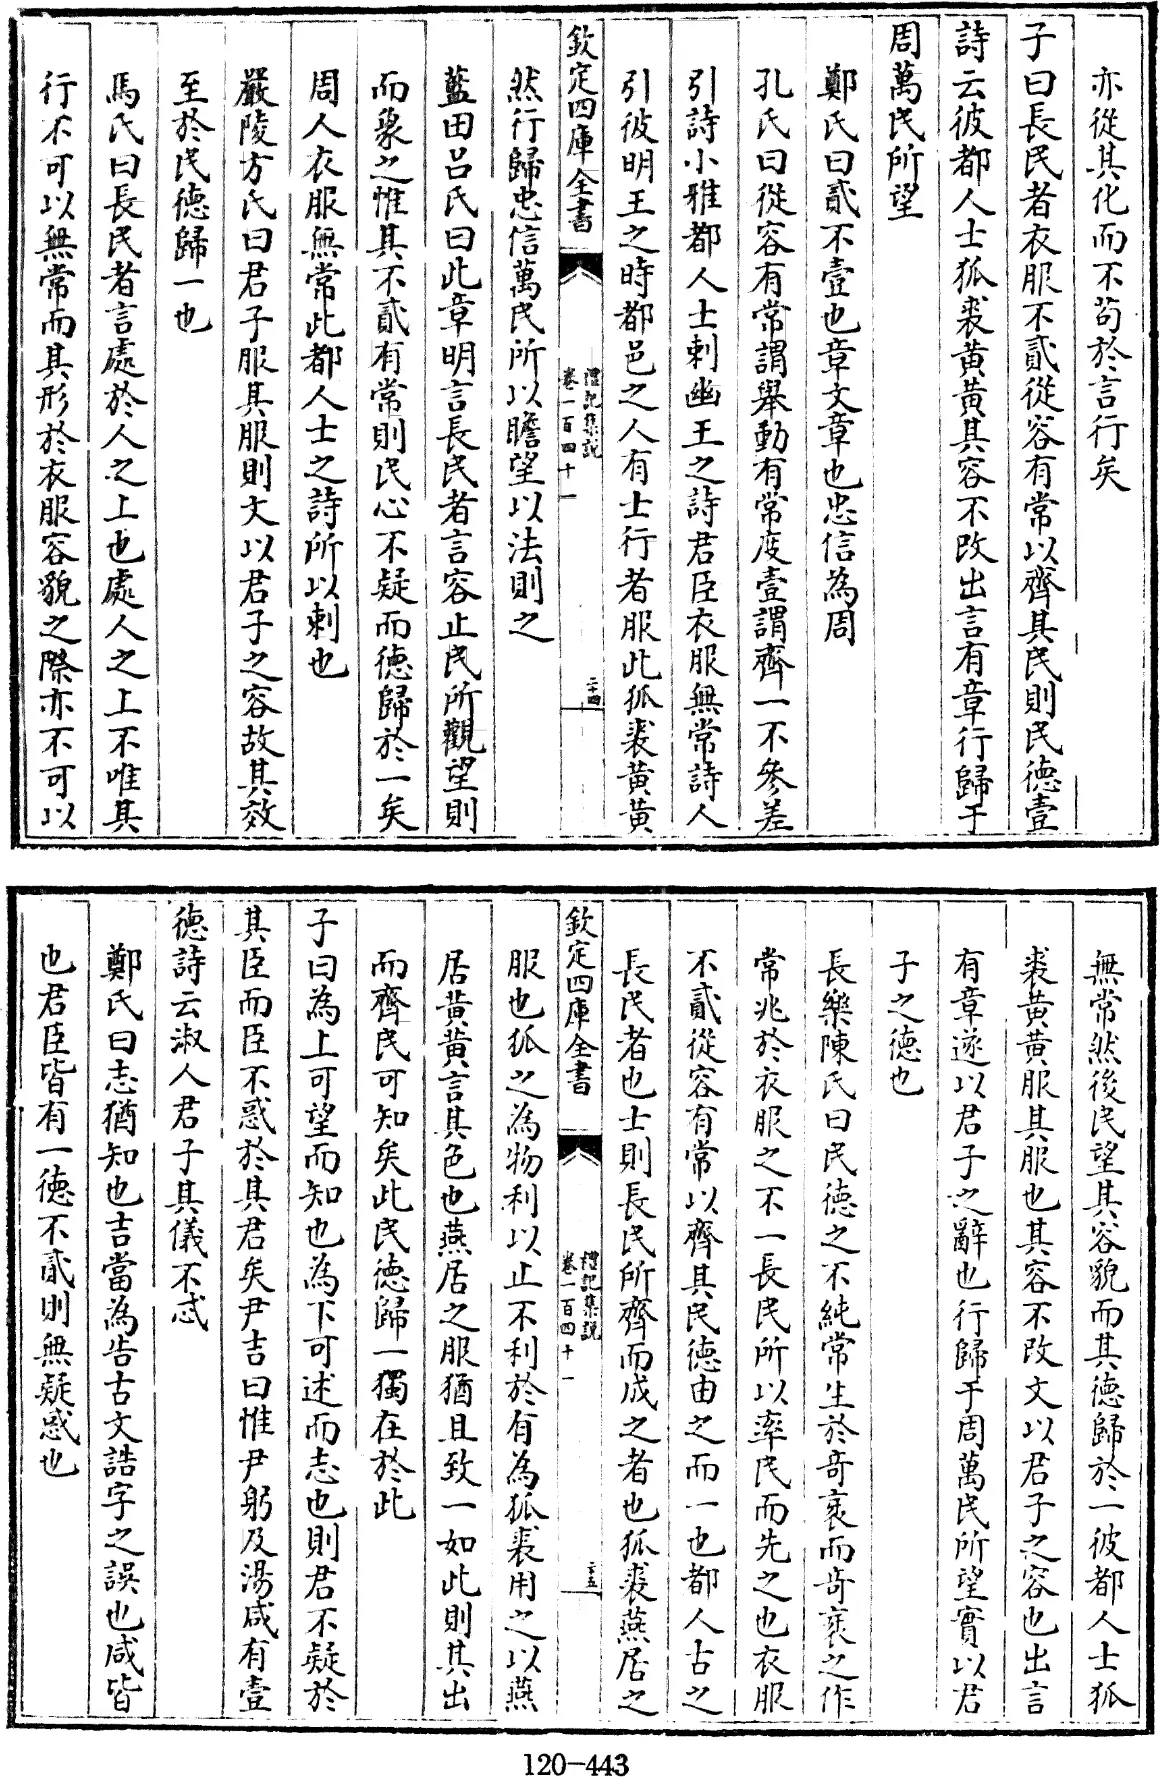 亦從其化而不苟於言行矣
子曰長民者衣服不貳從容有常以齊其民則民德壹
詩云彼都人士狐裘黃黃其容不改出言有章行歸于
周萬民所望
鄭氏曰貳不壹也章文章也忠信為周
孔氏曰從容有常謂舉動有常度壹謂齊一不參差
引詩小雅都人士刺幽王之詩君臣衣服無常詩人
引彼明王之時都邑之人有士行者服此狐裘黃黃
欽定四庫全書
禮記集說
卷一百四十一
二十四
然行歸忠信萬民所以瞻望以法則之
藍田呂氏曰此章明言長民者言容止民所觀望則
而象之惟其不貳有常則民心不疑而德歸於一矣
周人衣服無常此都人士之詩所以刺也
嚴陵方氏曰君子服其服則文以君子之容故其效
至於民德歸一也
馬氏曰長民者言處於人之上也處人之上不唯其
行不可以無常而其形於衣服容貌之際亦不可以
無常然後民望其容貌而其德歸於一彼都人士狐
裘黃黃服其服也其容不改文以君子之容也出言
有章遂以君子之辭也行歸于周萬民所望實以君
子之德也
長樂陳氏曰民德之不純常生於奇衺而奇衺之作
常兆於衣服之不一長民所以率民而先之也衣服
不貳從容有常以齊其民德由之而一也都人古之
長民者也士則長民所齊而成之者也狐裘燕居之
欽定四庫全書
禮記集說
卷一百四十一
二十五
服也狐之為物利以止不利於有為狐裘用之以燕
居黃黃言其色也燕居之服猶且致一如此則其出
而齊民可知矣此民德歸一獨在於此
子曰為上可望而知也為下可述而志也則君不疑於
其臣而臣不惑於其君矣尹吉曰惟尹躬及湯咸有壹
德詩云淑人君子其儀不忒
鄭氏曰志猶知也吉當為告古文誥字之誤也咸皆
也君臣皆有一德不貳則無疑惑也
120-443